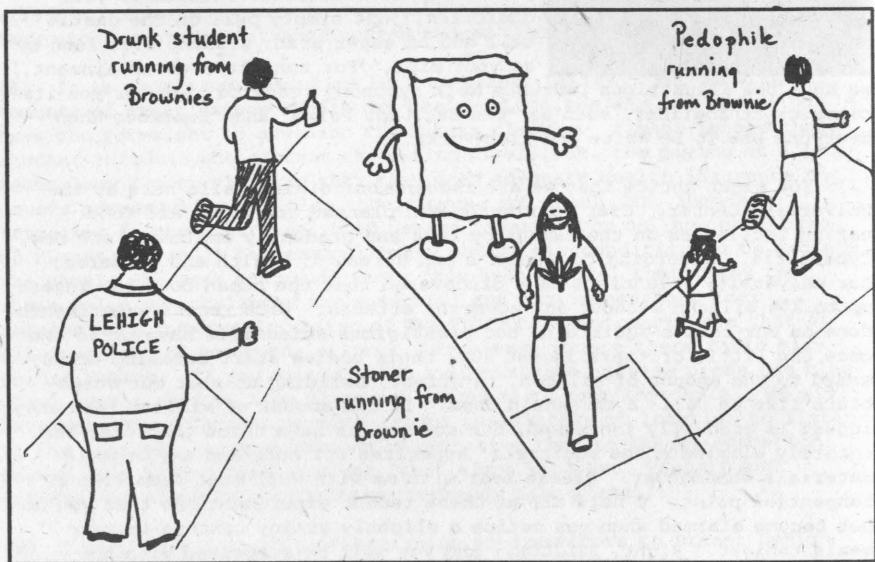 Drunk student
running from
Brownies
Pedophile
running
from Brownie
LEHIGH
POLICE
Stoner
running from
Brownie